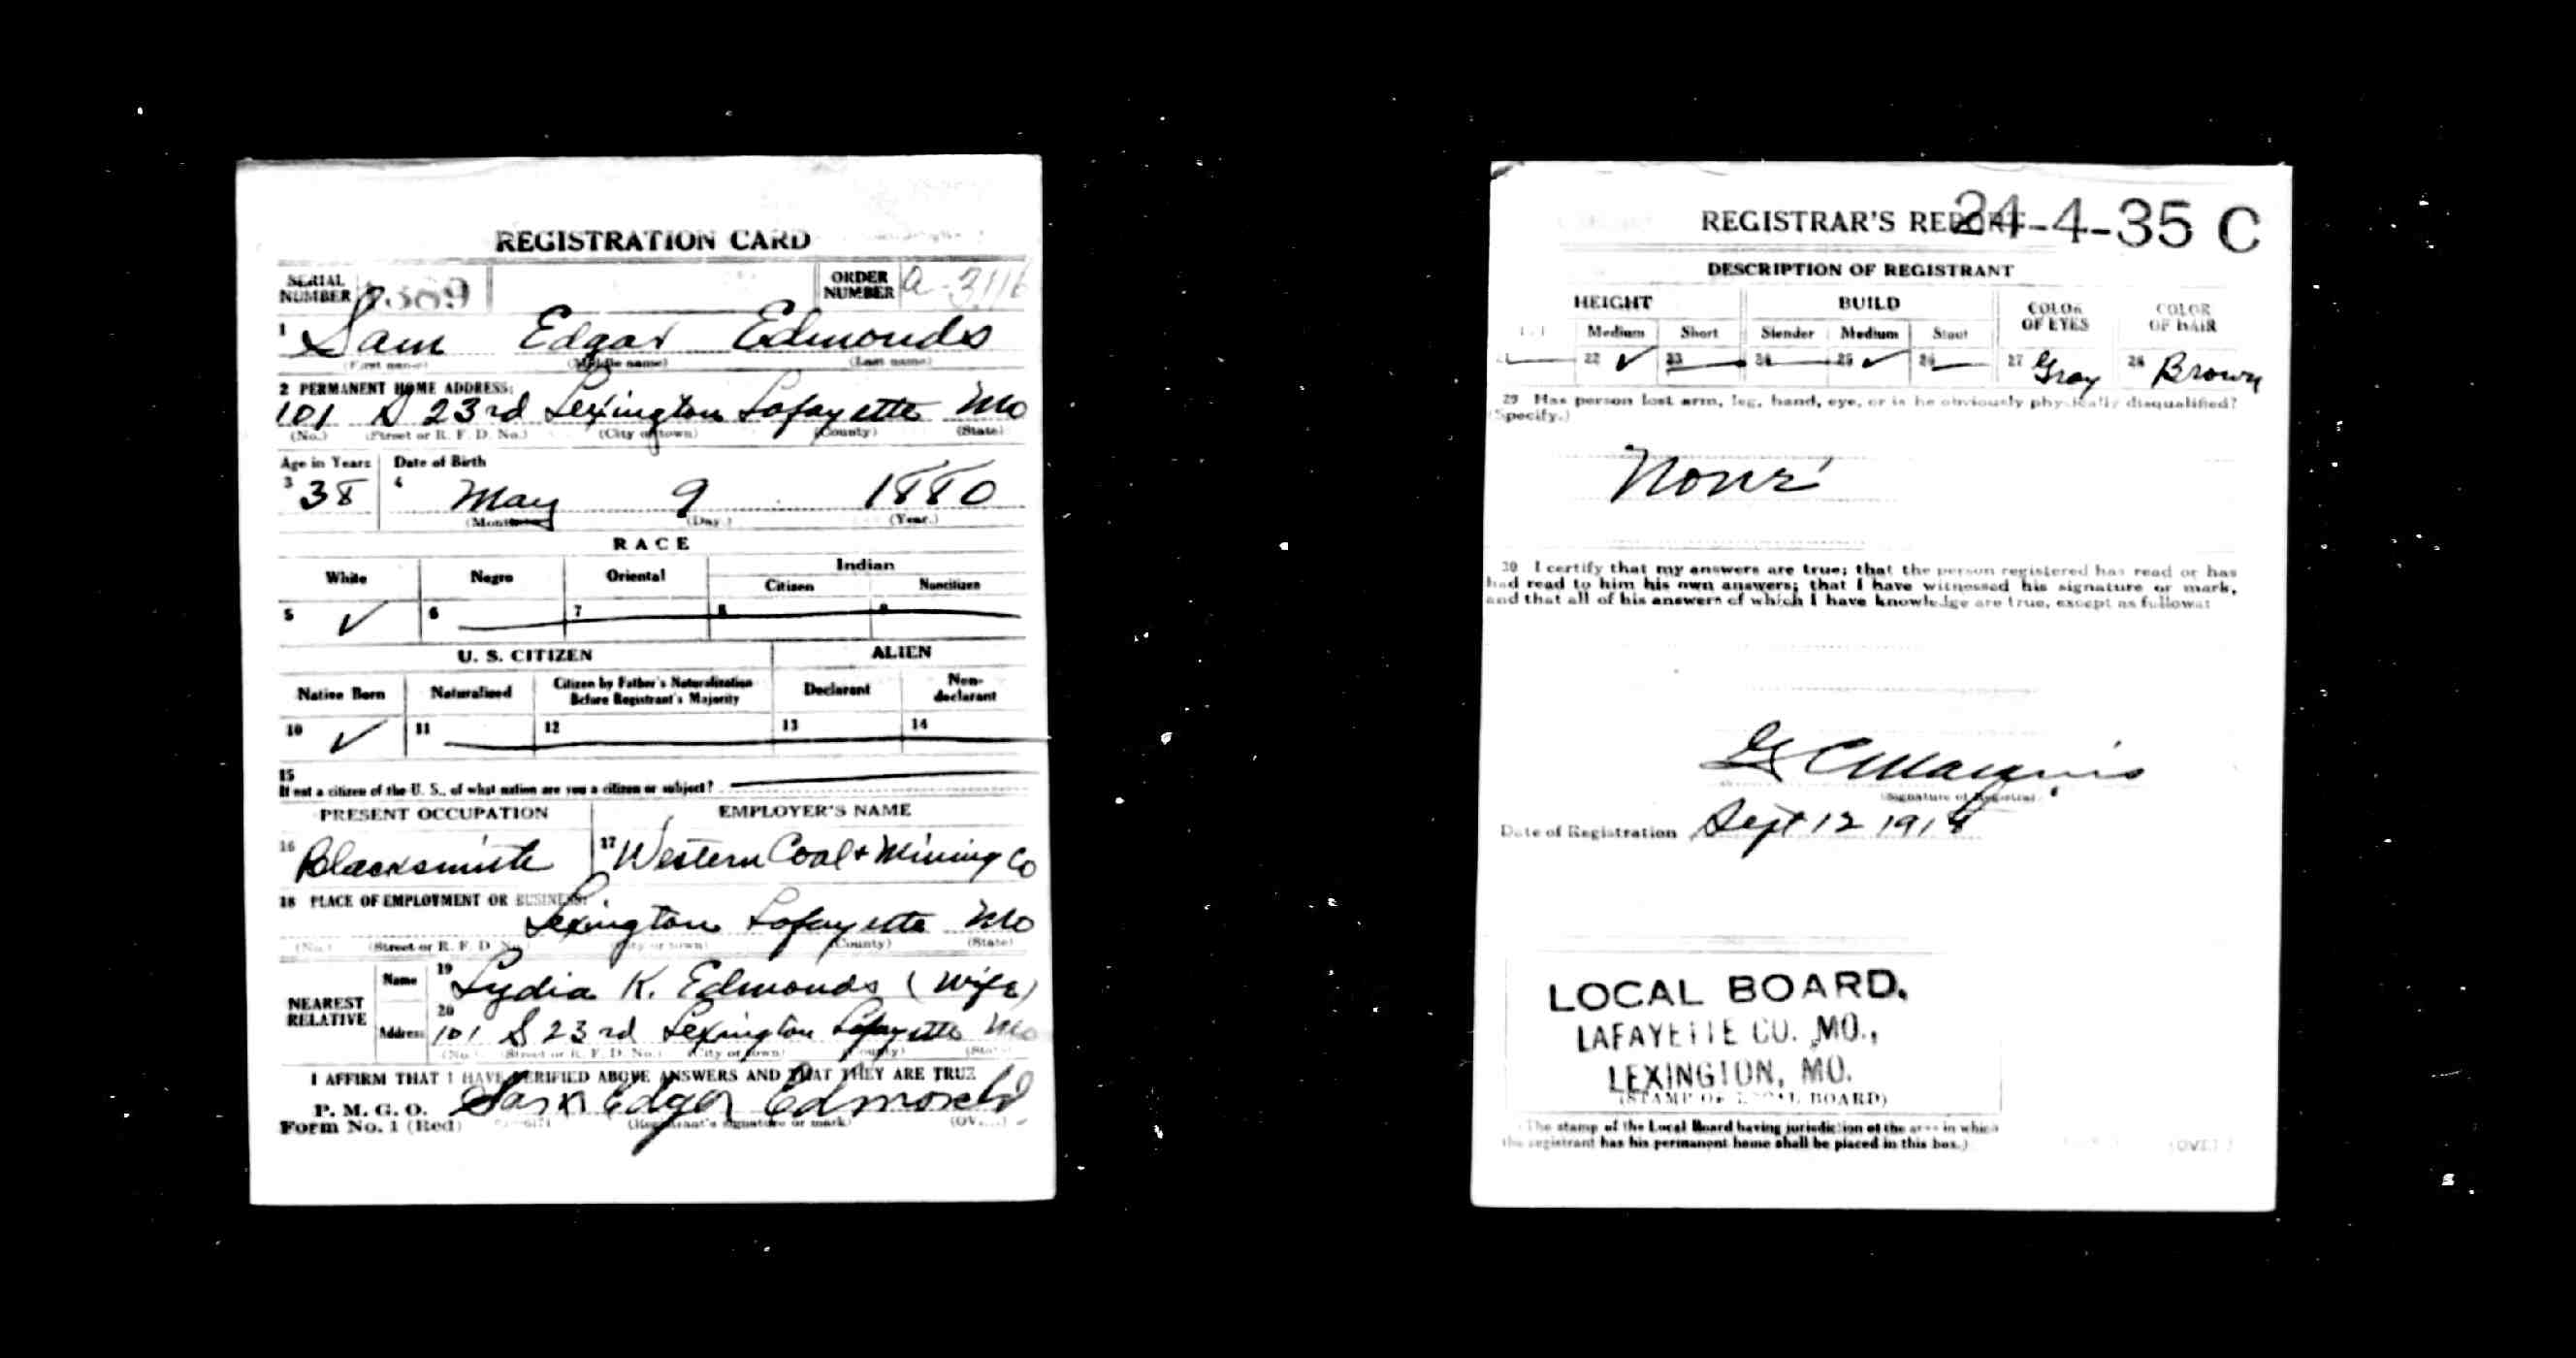 REGISTRATION CARD
SERIAL NUMBER 389 ORDER NUMBER a-3116
1 Sam Edgar Edmonds
(First name) (Middle name) (Last name)
2 PERMANENT HOME ADDRESS:
101 S 23rd Lexington Lafayette Mo
(No.) (Street or R. F. D. No.) (City or town) (County) (State)
Age in Years Date of Birth
3 38 4 May 9 1880
(Month) (Day.) (Year.)
RACE
White Negro Oriental Indian
Citizen Noncitizen
5 ✓ 6 7 8 9
U. S. CITIZEN ALIEN
Native Born Naturalized Citizen by Father's Naturalization Before Registrant's Majority Declarant Non-declarant
10 ✓ 11 12 13 14
15
If not a citizen of the U. S., of what nation are you a citizen or subject?
PRESENT OCCUPATION EMPLOYER'S NAME
16 Blacksmith 17 Western Coal + Mining Co
18 PLACE OF EMPLOYMENT OR BUSINESS:
Lexington Lafayette Mo
(No.) (Street or R. F. D. No.) (City or town) (County) (State)
NEAREST RELATIVE Name 19 Lydia K. Edmonds (Wife)
Address 20 101 S 23rd Lexington Lafayette Mo
(No.) (Street or R. F. D. No.) (City or town) (County) (State)
I AFFIRM THAT I HAVE VERIFIED ABOVE ANSWERS AND THAT THEY ARE TRUE
P. M. G. O. Sam Edgar Edmonds
Form No. 1 (Red) (Registrant's signature or mark) (OVER)
REGISTRAR'S REPORT 24-4-35 C
DESCRIPTION OF REGISTRANT
HEIGHT BUILD COLOR OF EYES COLOR OF HAIR
Medium Short Slender Medium Stout
21 22 ✓ 23 24 25 ✓ 26 27 Gray 28 Brown
29 Has person lost arm, leg, hand, eye, or is he obviously physically disqualified?
(Specify.)
None
30 I certify that my answers are true; that the person registered has read or has
had read to him his own answers; that I have witnessed his signature or mark,
and that all of his answers of which I have knowledge are true, except as follows:
(Signature of Registrar)
Date of Registration Sept 12 1918
LOCAL BOARD,
LAFAYETTE CO. MO.,
LEXINGTON, MO.
(STAMP OF LOCAL BOARD)
(The stamp of the Local Board having jurisdiction of the area in which
the registrant has his permanent home shall be placed in this box.)
(OVER)